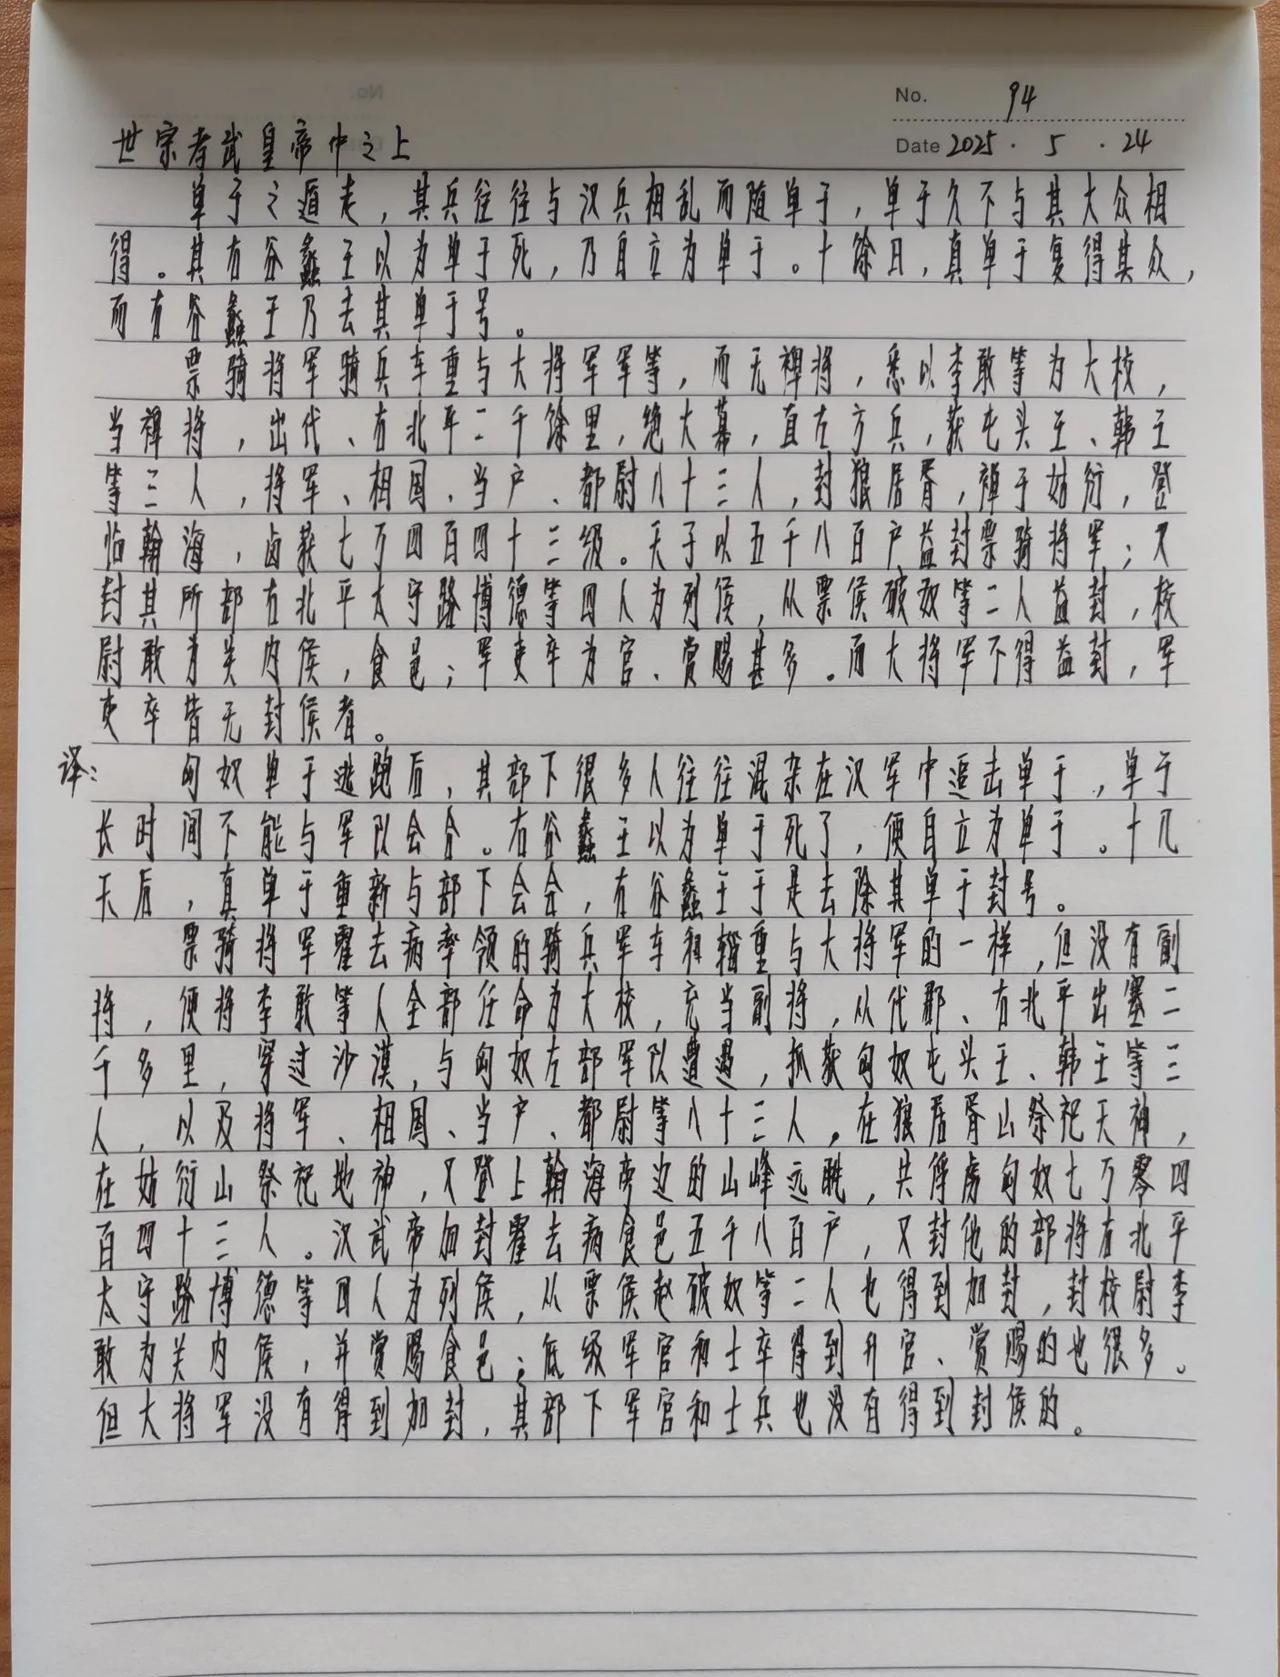 No. 94
Date 2025 · 5 · 24
世宗孝武皇帝中之上
单于之遁走，其兵往往与汉兵相乱而随单于，单于久不与其大众相
得。其右谷蠡王以为单于死，乃自立为单于。十馀日，真单于复得其众，
而右谷蠡王乃去其单于号。
票骑将军骑兵车重与大将军军等，而无裨将，悉以李敢等为大校，
当裨将，出代、右北平二千馀里，绝大幕，直左方兵，获屯头王、韩王
等三人，将军、相国、当户、都尉八十三人，封狼居胥，禅于姑衍，登
临翰海，卤获七万四百四十三级。天子以五千八百户益封票骑将军；又
封其所部右北平太守路博德等四人为列侯，从票侯破奴等二人益封，校
尉敢为关内侯，食邑；军吏卒为官、赏赐甚多。而大将军不得益封，军
吏卒皆无封侯者。
译：匈奴单于逃跑后，其部下很多人往往混杂在汉军中追击单于，单于
长时间不能与军队会合。右谷蠡王以为单于死了，便自立为单于。十几
天后，真单于重新与部下会合，右谷蠡王于是去除其单于封号。
票骑将军霍去病率领的骑兵军车和辎重与大将军的一样，但没有副
将，便将李敢等人全部任命为大校，充当副将，从代郡、右北平出塞二
千多里，穿过沙漠，与匈奴左部军队遭遇，抓获匈奴屯头王、韩王等三
人，以及将军、相国、当户、都尉等八十三人。在狼居胥山祭祀天神，
在姑衍山祭祀地神，又登上翰海旁边的山峰远眺，共俘虏匈奴七万零四
百四十三人。汉武帝加封霍去病食邑五千八百户，又封他的部将右北平
太守路博德等四人为列侯，从票侯赵破奴等二人也得到加封，封校尉李
敢为关内侯，并赏赐食邑；低级军官和士卒得到升官、赏赐的也很多。
但大将军没有得到加封，其部下军官和士兵也没有得到封侯的。